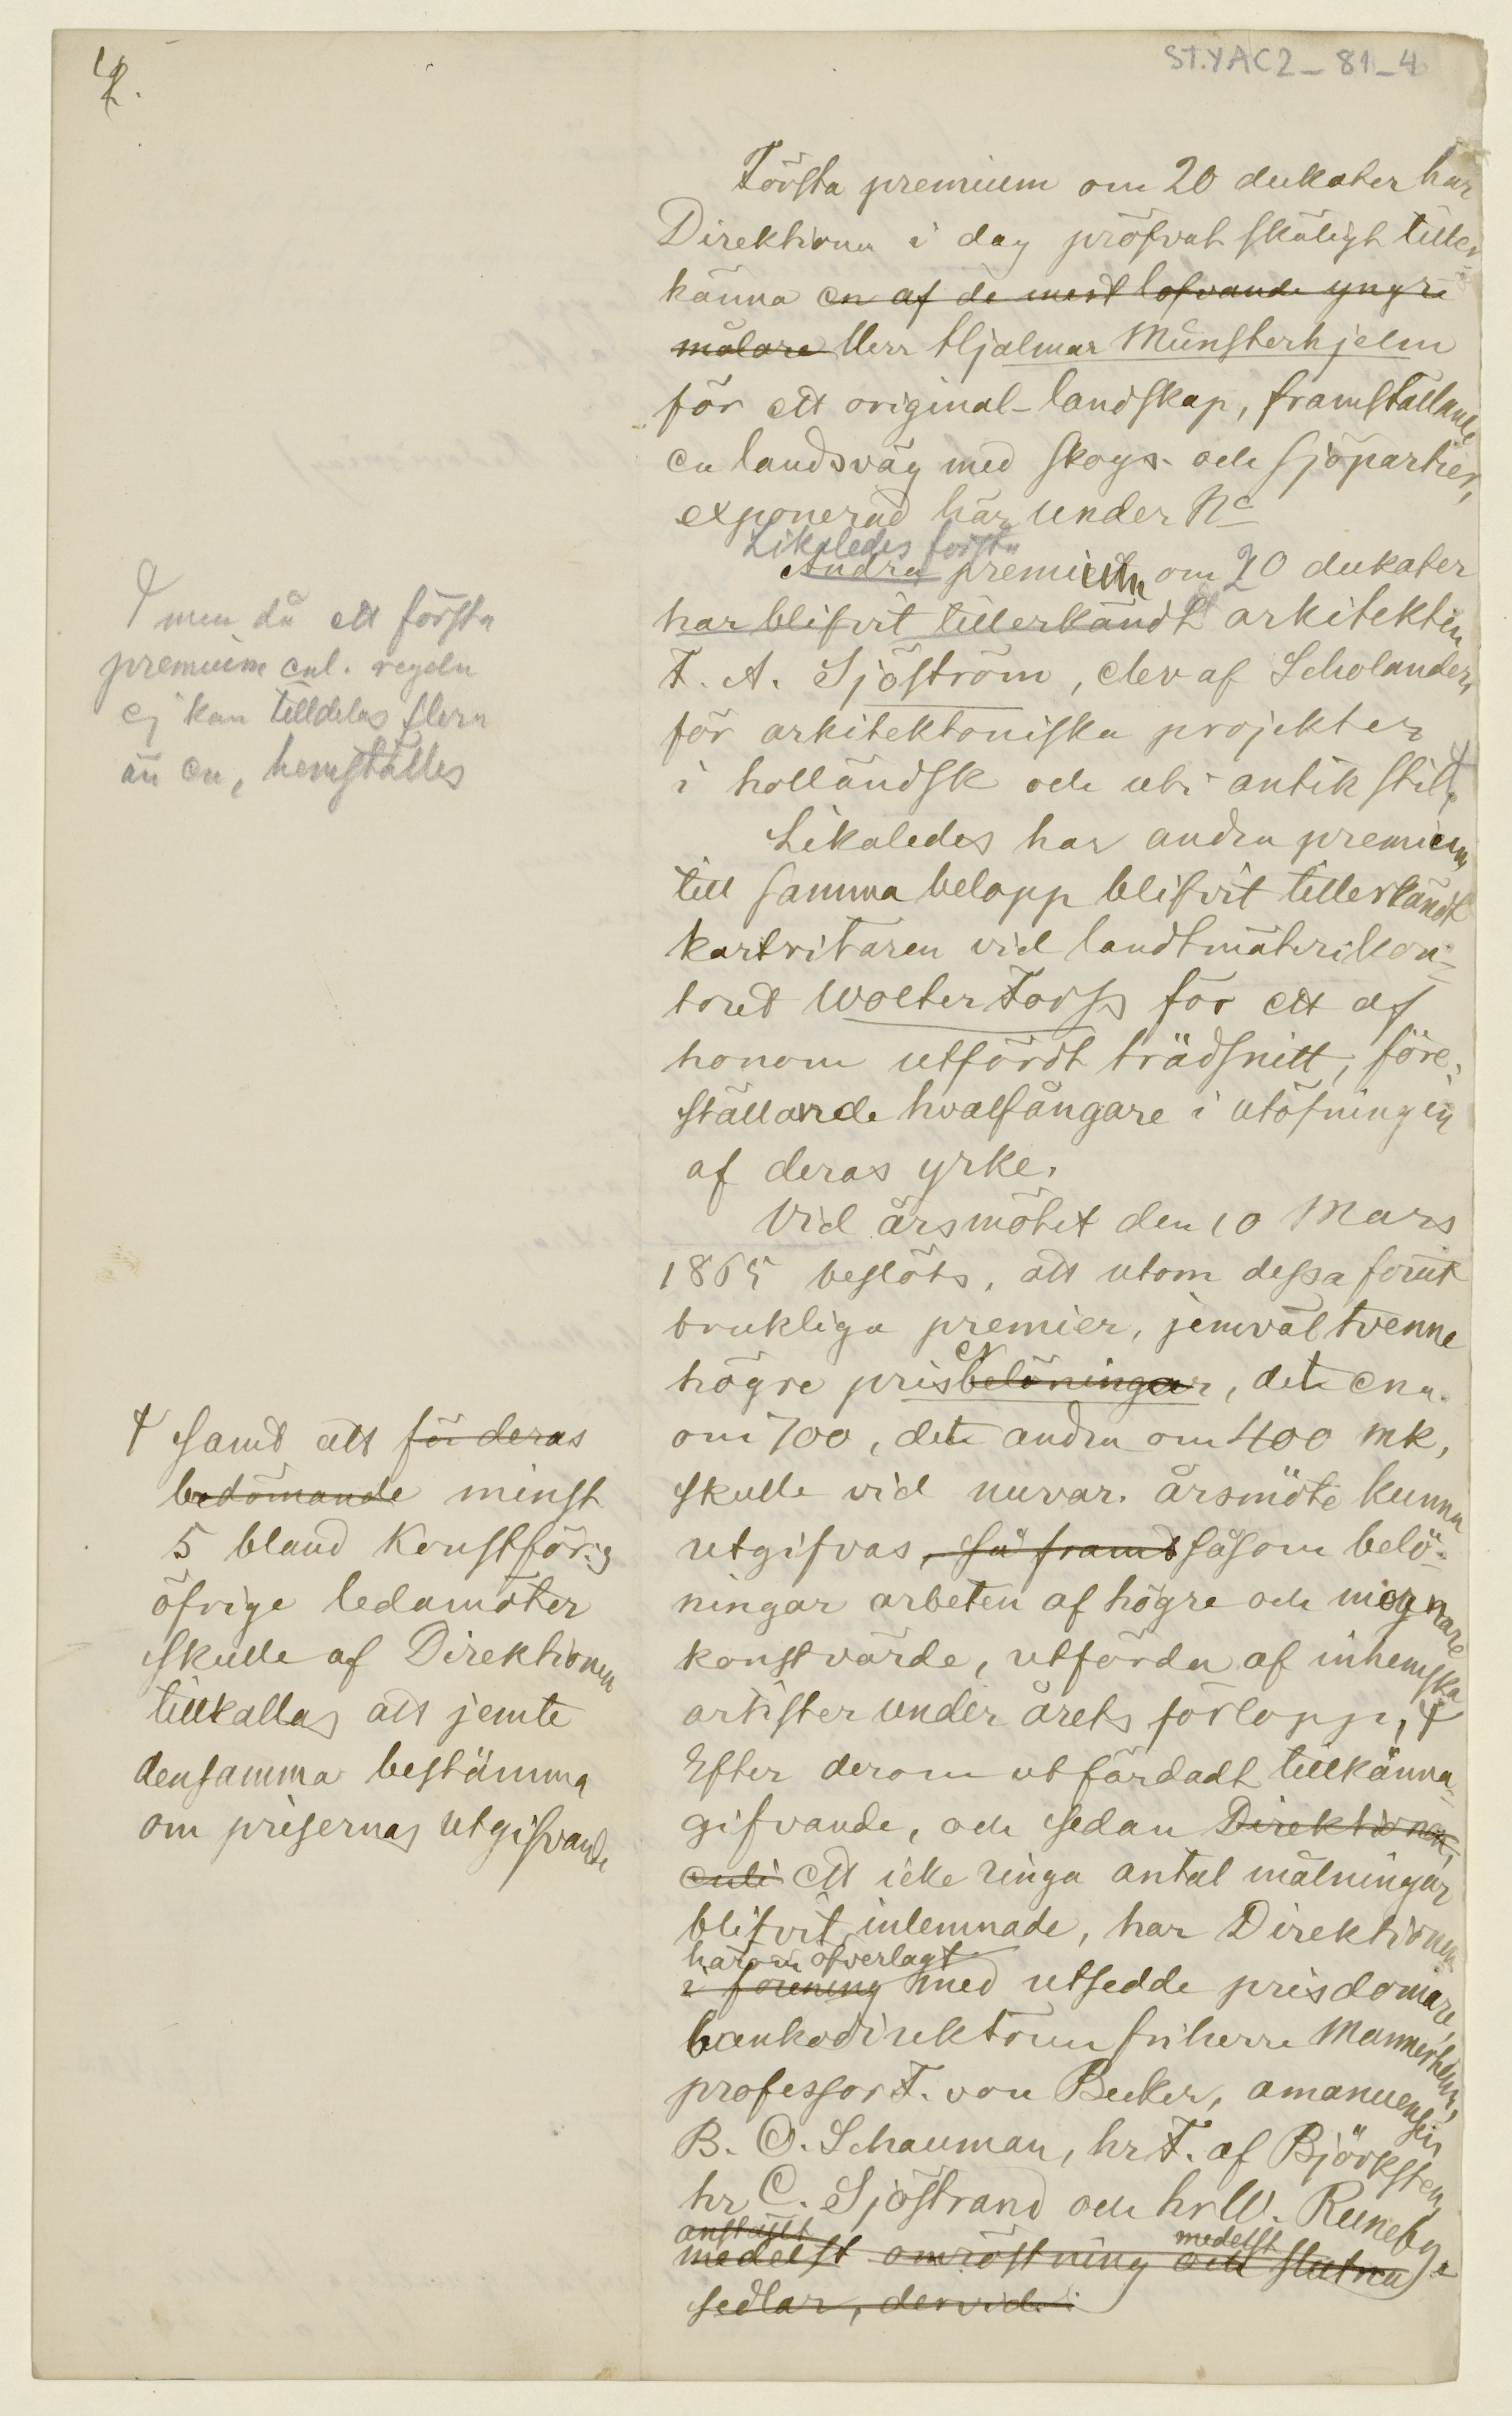 2.
ST.YAC2_81_4
Första premium om 20 dukater har
Direktionen i dag pröfvat skäligt tiller-
känna en af de mest lofvande yngre
målare Herr Hjalmar Munsterhjelm
för ett original-landskap, framställande
en landsväg med skogs- och sjöpartier,
exponerad här under No
Likaledes första
Andra premium om 20 dukater
har blifvit tillerkändt arkitekten
F. A. Sjöström, elev af Scholander,
för arkitektoniska projekter
i holländsk och uti antik stil.
† men då ett första
premium enl. regeln
ej kan tilldelas flera
än en, hemställes
Likaledes har andra premium
till samma belopp blifvit tillerkändt
kartritaren vid landtmäterikon-
toret Wolter Forss för ett af
honom utfördt trädsnitt, före-
ställande hvalfångare i utöfningen
af deras yrke.
Vid årsmötet den 10 Mars
1865 beslöts, att utom dessa förut
brukliga premier, jemväl tvenne
högre prisbelöningar, det ena
om 700, det andra om 400 mk,
skulle vid nuvar. årsmöte kunna
utgifvas, så framt såsom belö-
ningar arbeten af högre och mognare
konstvärde, utförda af inhemska
artister under årets förlopp, †
† samt att för deras
bedömande minst
5 bland Konstför:s
öfrige ledamöter
skulle af Direktionen
tillkallas att jemte
densamma bestämma
om prisernas utgifvande
Efter derom utfärdadt tillkänna-
gifvande, och sedan Direktionen,
enli ett icke ringa antal målningar
blifvit inlemnade, har Direktionen
härom öfverlagt
i förening med utsedde prisdomare,
bankodirektören friherre Mannerheim,
professor F. von Becker, amanuensen
B. O. Schauman, hr F. af Björksten,
hr C. Sjöstrand och hr W. Runeberg
anställt
medelst omröstning medelst slutna
sedlar, dervid